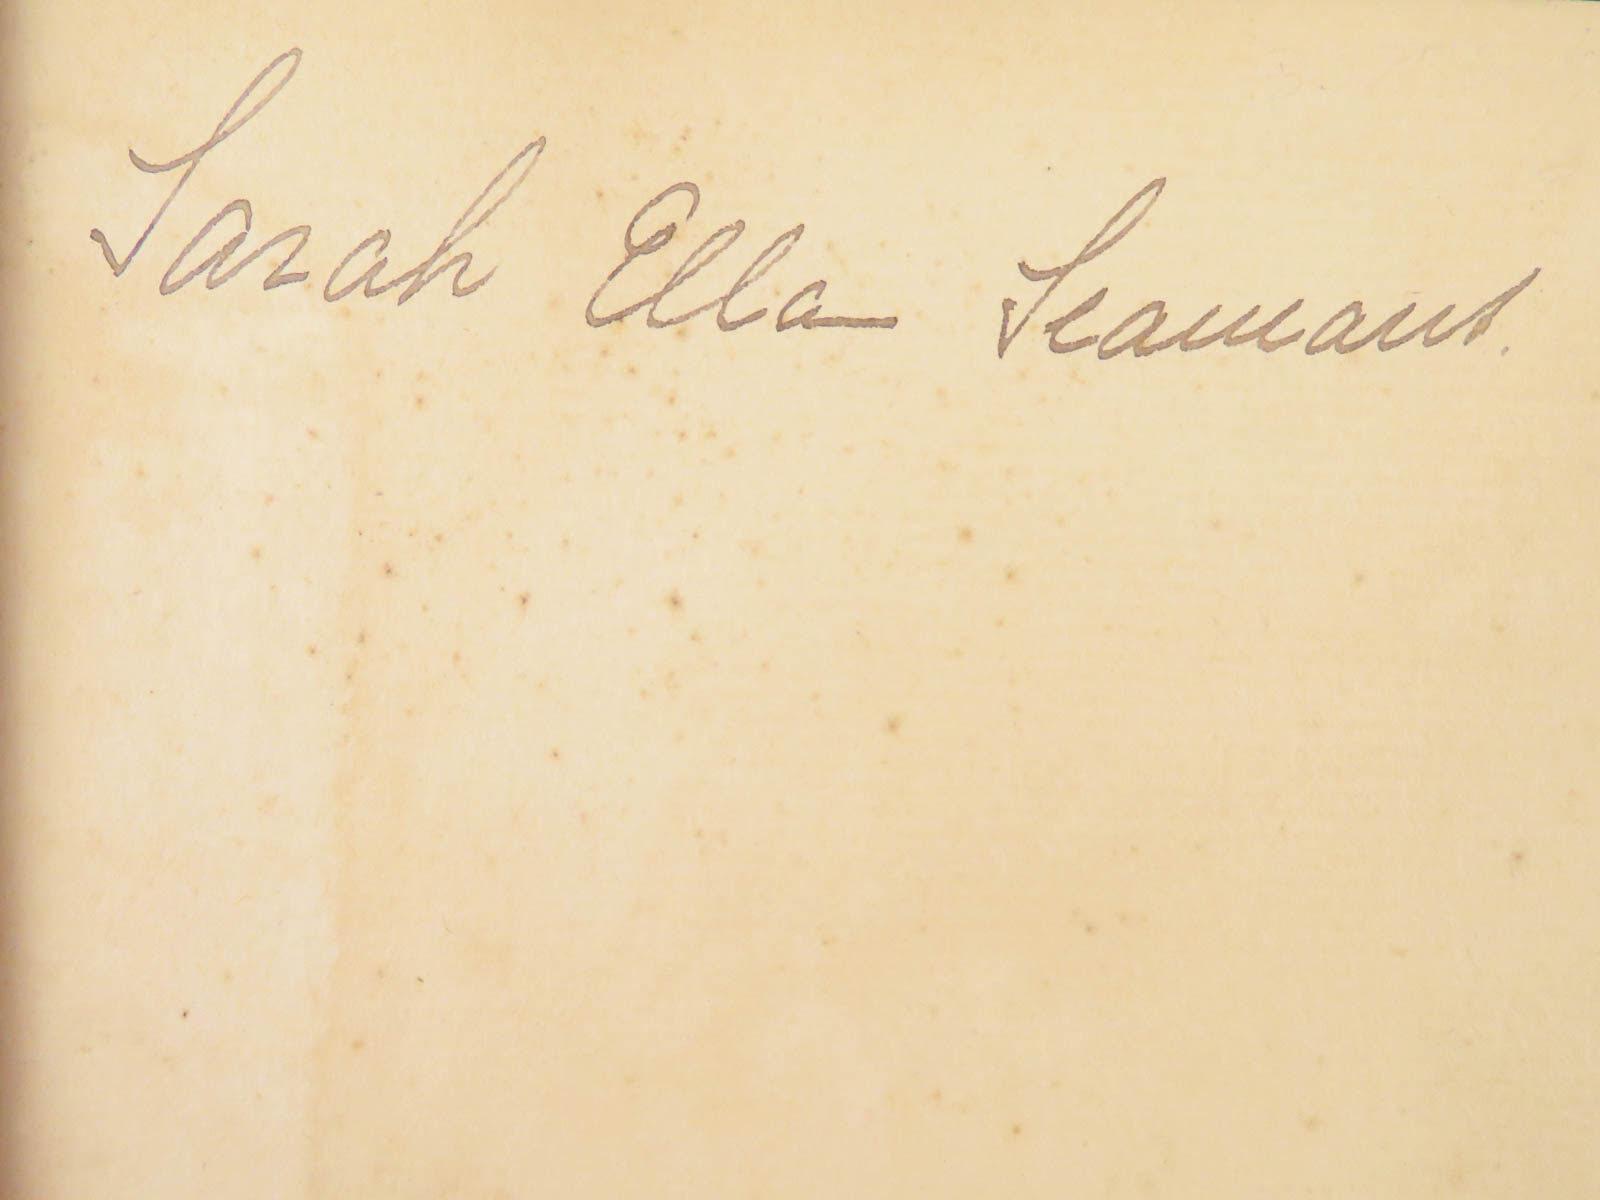 Sarah Ella Seamans.